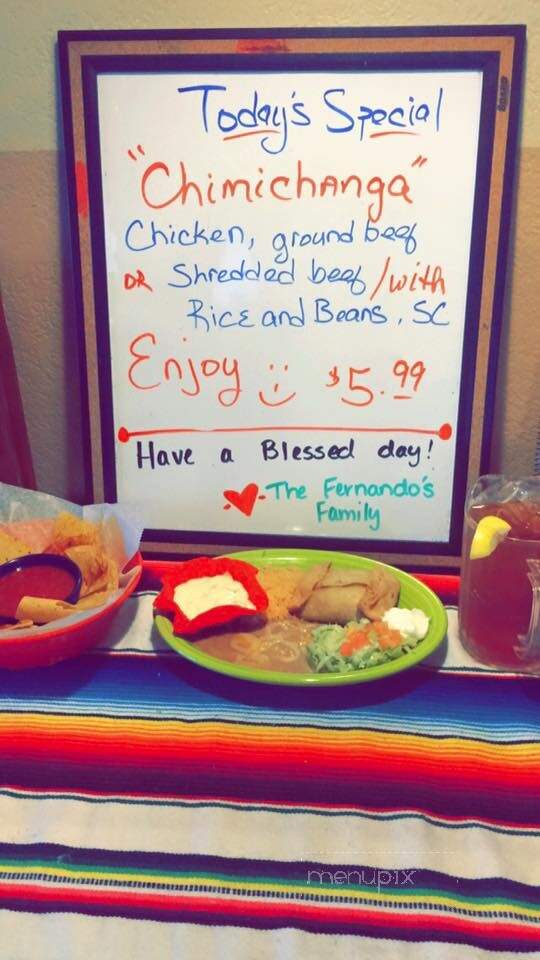 Today's Special
"Chimichanga"
Chicken, ground beef
OR Shredded beef / with
Rice and Beans, SC
Enjoy :) $5.99
Have a Blessed day!
The Fernando's
Family
menupix